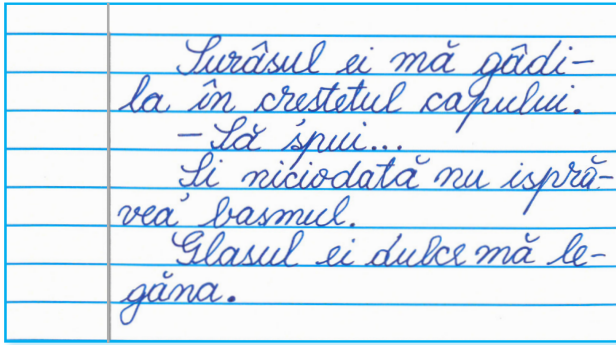 Surâsul ei mă gâdi-
la în crestetul capului.
- Să spui...
Si niciodată nu ispră-
vea basmul.
Glasul ei dulce mă le-
găna.